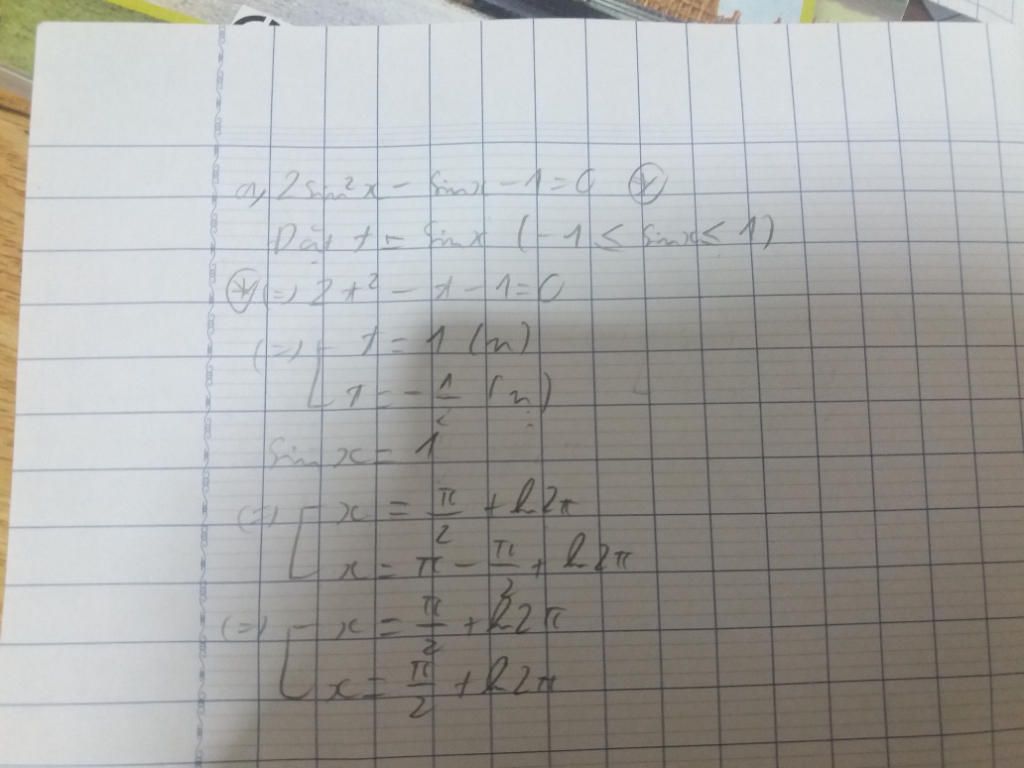 a, 2sin²x - sinx - 1 = 0 (*)
Đặt t = sinx (-1 ≤ sinx ≤ 1)
(*) (=) 2t² - t - 1 = 0
(=) [ t = 1 (n)
t = -1/2 (n)
sin x = 1
(=) [ x = π/2 + k2π
x = π - π/2 + k2π
(=) [ x = π/2 + k2π
x = π/2 + k2π